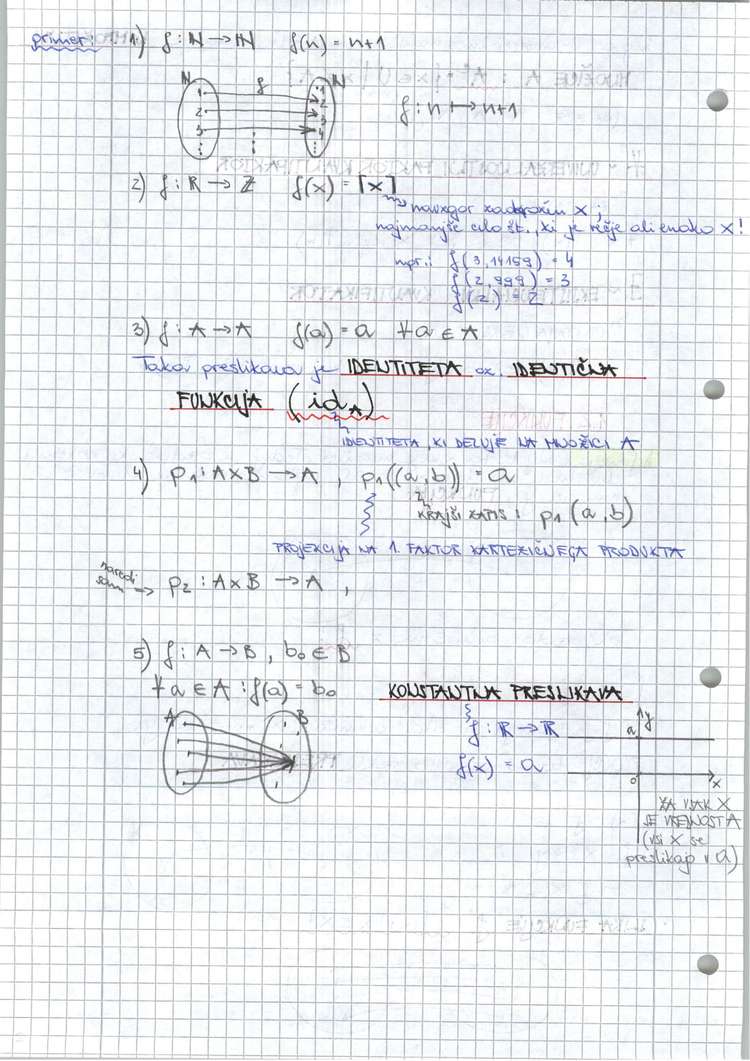 primer: 1) f : ℕ → ℕ f(n) = n+1
ℕ f ℕ
1 1
2 2
3 3
4
f : n ↦ n+1
2) f : ℝ → ℤ f(x) = ⌈x⌉
navzgor zaokrožim x ;
najmanjše celo št., ki je večje ali enako x!
npr.: f(3,14159) = 4
f(2,999) = 3
f(2) = 2
3) f : A → A f(a) = a ∀a ∈ A
Taka preslikava je IDENTITETA oz. IDENTIČNA
FUNKCIJA (id_A)
IDENTITETA, KI DELUJE NA MNOŽICI A
4) p₁ : A×B → A , p₁((a,b)) = a
KRAJŠI ZAPIS : p₁(a,b)
PROJEKCIJA NA 1. FAKTOR KARTEZIČNEGA PRODUKTA
naredi
sam → p₂ : A×B → A ,
5) f : A → B , b₀ ∈ B
∀a ∈ A : f(a) = b₀ KONSTANTNA PRESLIKAVA
A B
f : ℝ → ℝ
f(x) = a
a y
0 x
ZA VSAK X
JE VREDNOST A
(vsi x se
preslikajo v a)